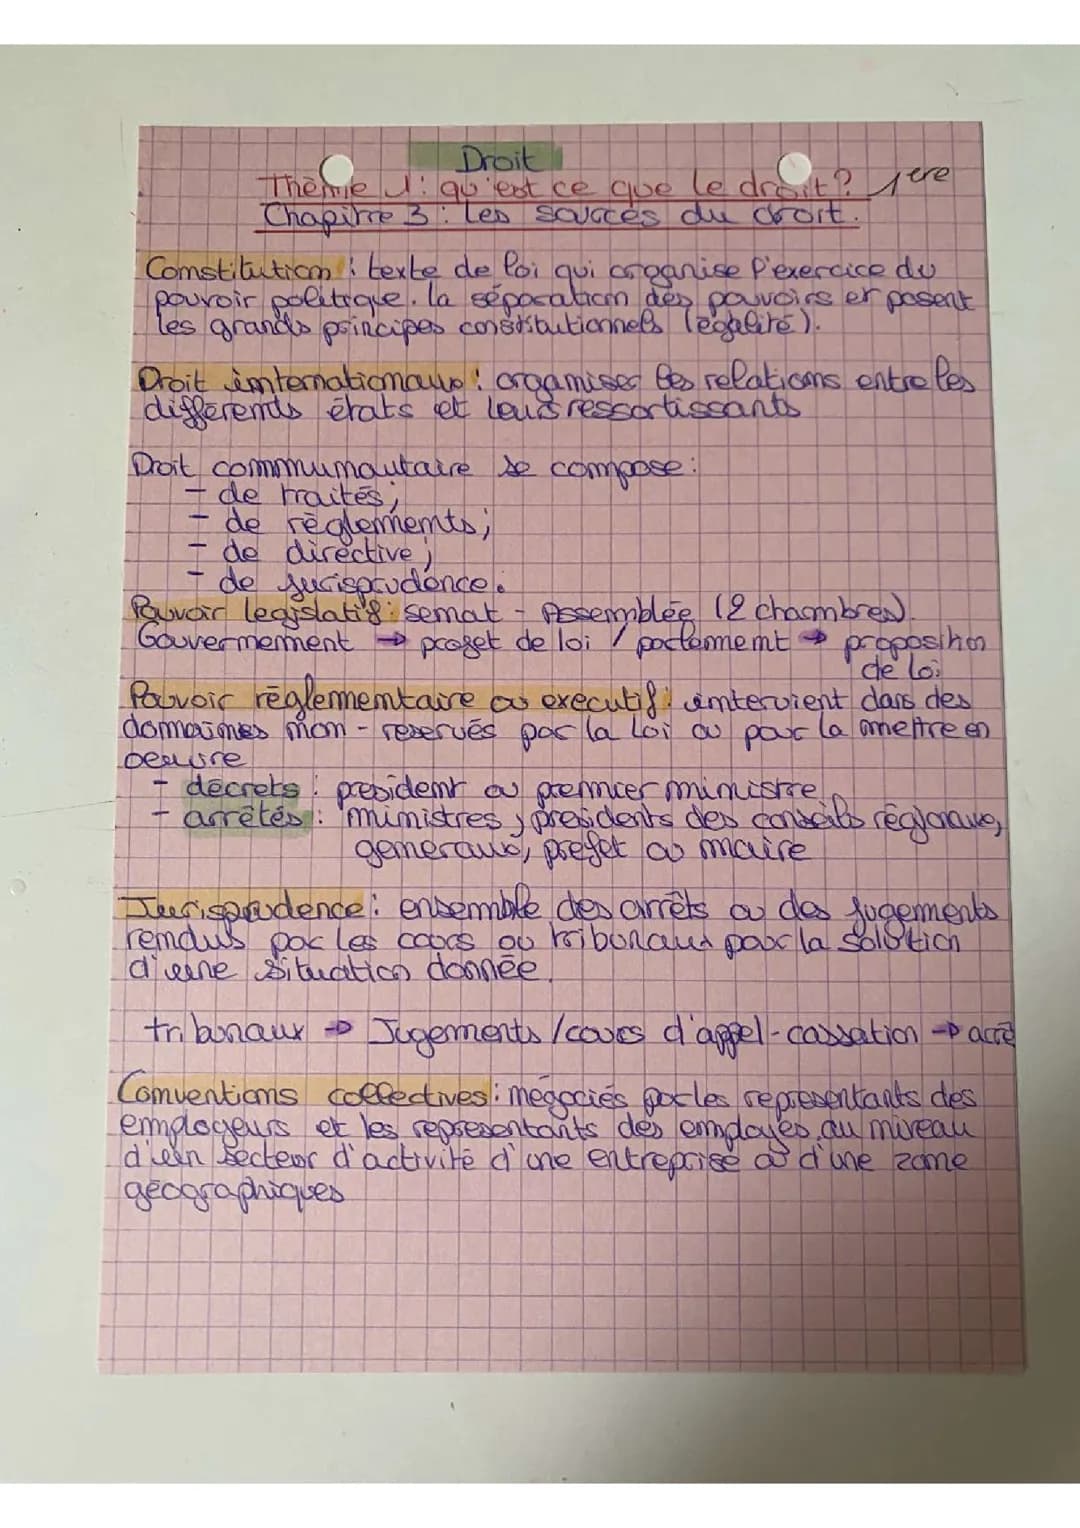 Droit
Thème 1 : qu'est ce que le droit ? 1ere
Chapitre 3 : Les sources du droit.
Constitution : texte de loi qui organise l'exercice du
pouvoir politique. la séparation des pouvoirs et posent
les grands principes constitutionnels (égalité).
Droit internationaux : organiser les relations entre les
différents états et leurs ressortissants
Droit communautaire se compose :
- de traités;
- de règlements;
- de directive;
- de jurisprudence.
Pouvoir legislatif : senat - Assemblée (2 chambres).
Gouvernement → projet de loi / parlement → proposition
de loi
Pouvoir réglementaire ou executif : intervient dans des
domaines non-reservés par la loi ou pour la mettre en
oeuvre
- décrets : president ou premier ministre
- arrêtés : ministres, presidents des conseils régionaux,
generaux, prefet ou maire
Jurisprudence : ensemble des arrêts ou des jugements
rendus par les cours ou tribunaux pour la solution
d'une situation donnée.
tribunaux → Jugements / cours d'appel - cassation → arrê
Conventions collectives : négociés par les representants des
employeurs et les representants des employés, au niveau
d'un secteur d'activité d'une entreprise ou d'une zone
géographiques